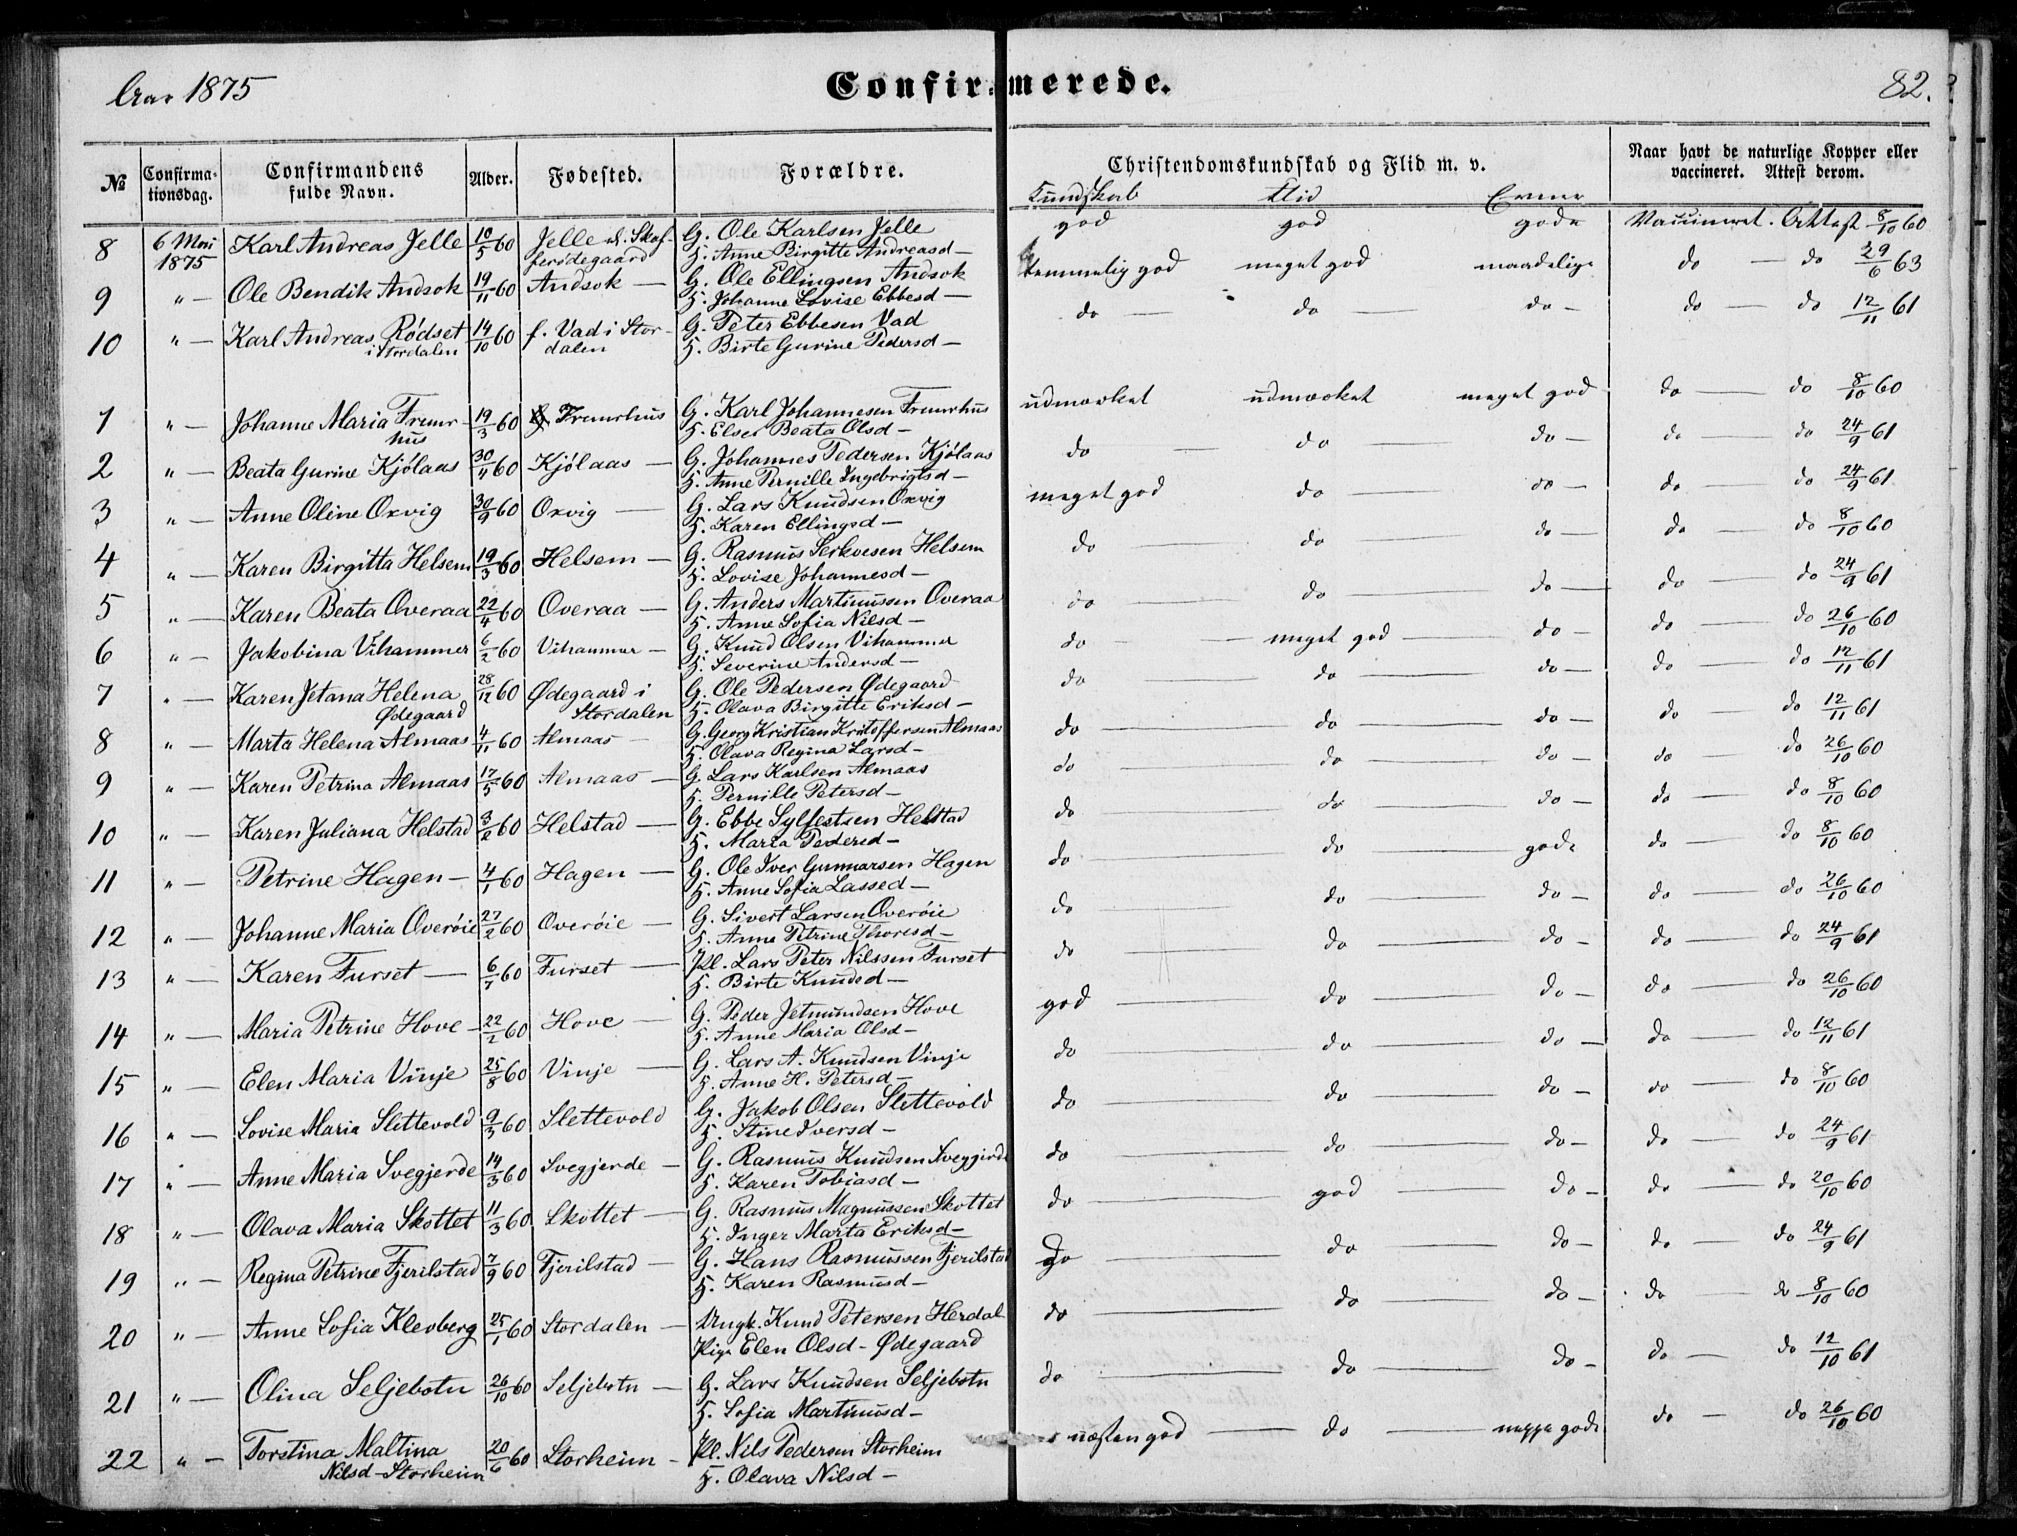 Aar 1875
Confirmerede.
82.
№ Confirmationsdag. Confirmandens fulde Navn. Alder. Fødested. Forældre. Christendomskundskab og Flid m. v. Naar havt de naturlige Kopper eller vaccineret. Attest derom.
Kundskab Flid Evner
8 6 Mai 1875 Karl Andreas Jelle 10/5 60 Jelle G. Ole Karlsen Jelle god god gode Vaccineret. Attest 8/10 60
H. Anne Birgitte Andreasd —
9 " — Ole Bendik Andsok 19/11 60 Andsok — G. Ole Ellingsen Andsok temmelig god meget god maadelige do — do 29/6 63
H. Johanne Lovise Ebbesd —
10 " — Karl Andreas Rødset 14/10 60 f. Vad i Stor- G. Peter Ebbesen Vad do — do — do — do — do 12/11 61
i Stordalen dalen H. Birte Gurine Pedersd —
1 " — Johanne Maria Fremr- 19/3 60 Fremrhus G. Karl Johannesen Fremrhus udmærket udmærket meget god do — do 8/10 60
hus H. Else Beata Olsd —
2 " — Beata Gurine Kjølaas 30/11 60 Kjølaas — G. Johannes Pedersen Kjølaas do — do — do — do — do 24/9 61
H. Anne Pernille Ingebrigtsd —
3 " — Anne Oline Oxvig 30/9 60 Oxvig — G. Lars Knudsen Oxvig meget god do — do — do — do 24/9 61
H. Karen Ellingsd —
4 " — Karen Birgitta Helsem 19/3 60 Helsem — G. Rasmus Serkvesen Helsem do — do — do — do — do 8/10 60
H. Lovise Johannesd —
5 " — Karen Beata Overaa 22/4 60 Overaa — G. Anders Martinussen Overaa do — do — do — do — do 24/9 61
H. Anne Sofia Nilsd —
6 " — Jakobina Vihammer 6/2 60 Vihammer — G. Knud Olsen Vihammer do — meget god — do — do — do 26/10 60
H. Severine Andersd —
7 " — Karen Jetana Helena 28/12 60 Ødegaard i G. Ole Pedersen Ødegaard do — do — do — do — do 12/11 61
Ødegaard Stordalen H. Olava Birgitte Eriksd —
8 " — Marta Helena Almaas 4/11 60 Almaas — G. Georg Kristian Kristoffersen Almaas do — do — do — do — do 12/11 61
H. Olava Regina Larsd —
9 " — Karen Petrina Almaas 17/5 60 Almaas — G. Lars Karlsen Almaas do — do — do — do — do 26/10 60
H. Pernille Petersd —
10 " — Karen Juliana Helstad 3/2 60 Helstad — G. Ebbe Sylfestsen Helstad do — do — do — do — do 8/10 60
H. Maria Pedersd —
11 " — Petrine Hagen — 4/1 60 Hagen — G. Ole Iver Gunnarsen Hagen do — do — gode do — do 8/10 60
H. Anne Sofia Lassed —
12 " — Johanne Maria Overøie 27/2 60 Overøie — G. Sivert Larsen Overøie do — do — do — do — do 26/10 60
H. Anne Petrine Thoresd —
13 " — Karen Furset — 6/7 60 Furset — Pl. Lars Peter Nilssen Furset do — do — do — do — do 24/9 61
H. Birte Knudsd —
14 " — Maria Petrine Hove — 22/2 60 Hove — G. Peder Jetmundsen Hove god — do — do — do — do 26/10 60
H. Anne Maria Olsd —
15 " — Elen Maria Vinje 25/8 60 Vinje — G. Lars A. Knudsen Vinje do — do — do — do — do 12/11 61
H. Anne H. Petersd —
16 " — Lovise Maria Slettevold 9/3 60 Slettevold G. Jakob Olsen Slettevold do — do — do — do — do 8/10 60
H. Stine Iversd —
17 " — Anne Maria Svegjerde 14/3 60 Svegjerde — G. Rasmus Knudsen Sveggjerde do — do — do — do — do 24/9 61
H. Karen Tobiasd —
18 " — Olava Maria Skottet 11/3 60 Skottet — G. Rasmus Magnussen Skottet do — god — do — do — do 20/10 60
H. Inger Marta Eriksd —
19 " — Regina Petrine Fjerilstad 7/9 60 Fjerilstad — G. Hans Rasmussen Fjerilstad do — do — do — do — do 24/9 61
H. Karen Rasmusd —
20 " — Anne Sofia Klevberg 25/1 60 Stordalen — Ungk. Knud Petersen Herdal do — do — do — do — do 8/10 60
Pige Elen Olsd — Ødegaard
21 " — Olina Seljebotn 26/10 60 Seljebotn — G. Lars Knudsen Seljebotn do — do — do — do — do 12/10 61
H. Sofia Martinusd —
22 " — Torstina Maltina 20/6 60 Storheim — Pl. Nils Pedersen Storheim næsten god — do — neppe gode do — do 26/10 60
Nilsd — Storheim H. Olava Nilsd —